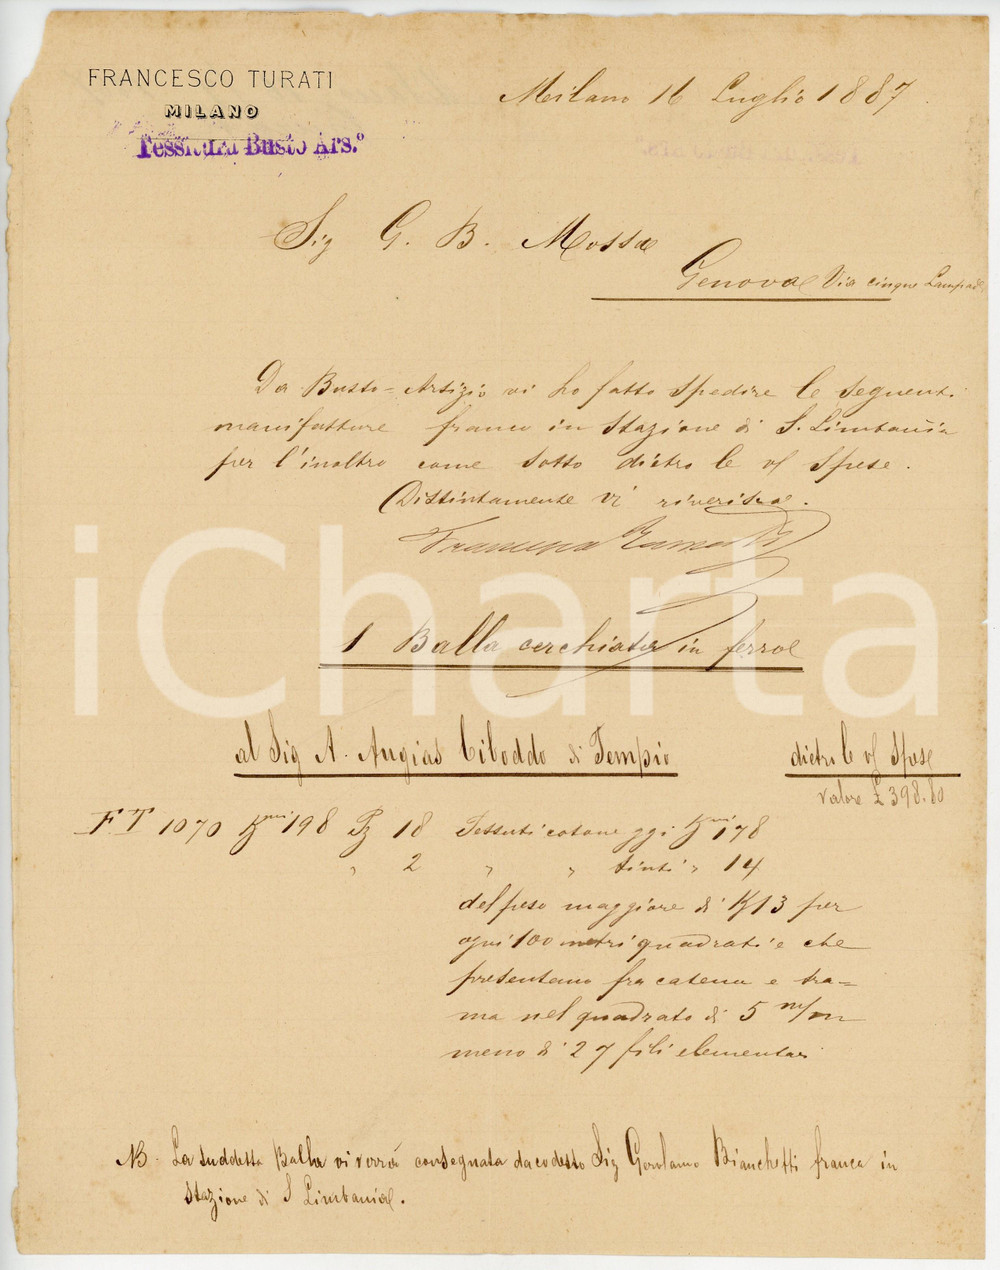 FRANCESCO TURATI
MILANO
Tessitura Busto Ars.º
Milano 16 Luglio 1887.
Sig G. B. Mossa
Genova Via cinque Lampadi
Da Busto-Arsizio vi ho fatto spedire le seguenti
manifatture franco in Stazione di S. Limbania
per l'inoltro come sotto dietro le vs spese.
Distintamente vi riverisco.
Francesco Turati
iCharta
1 Balla cerchiata in ferro
al Sig A. Augias Ciboddo di Tempio dietro le vs spese
Valore £ 398.80
FT 1070 Kmi 198 Pz 18 Tessuti cotone ggi Kmi 178
" 2 " " tinti " 14
del peso maggiore di K 13 per
ogni 100 metri quadrati e che
presentano fra catena e tra=
ma nel quadrato di 5 m/m
meno di 27 fili elementari
NB. La suddetta Balla vi verrà consegnata da codesto Sig Gerolamo Bianchetti franca in
Stazione di S Limbania.